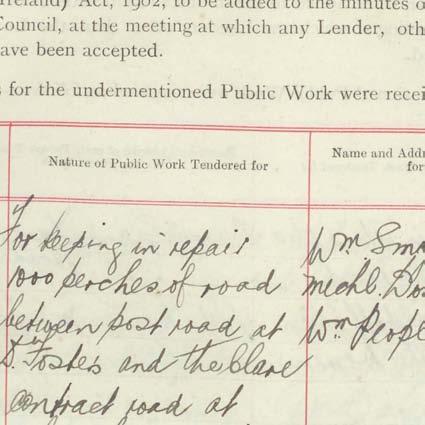 Ireland) Act, 1902, to be added to the minutes o
Council, at the meeting at which any Lender, oth
ave been accepted.
s for the undermentioned Public Work were recei
Nature of Public Work Tendered for
Name and Addr
for
For keeping in repair
1000 perches of road
between post road at
Fosters and the Clare
contract road at
Wm Sma
Michl. Do
Wm People